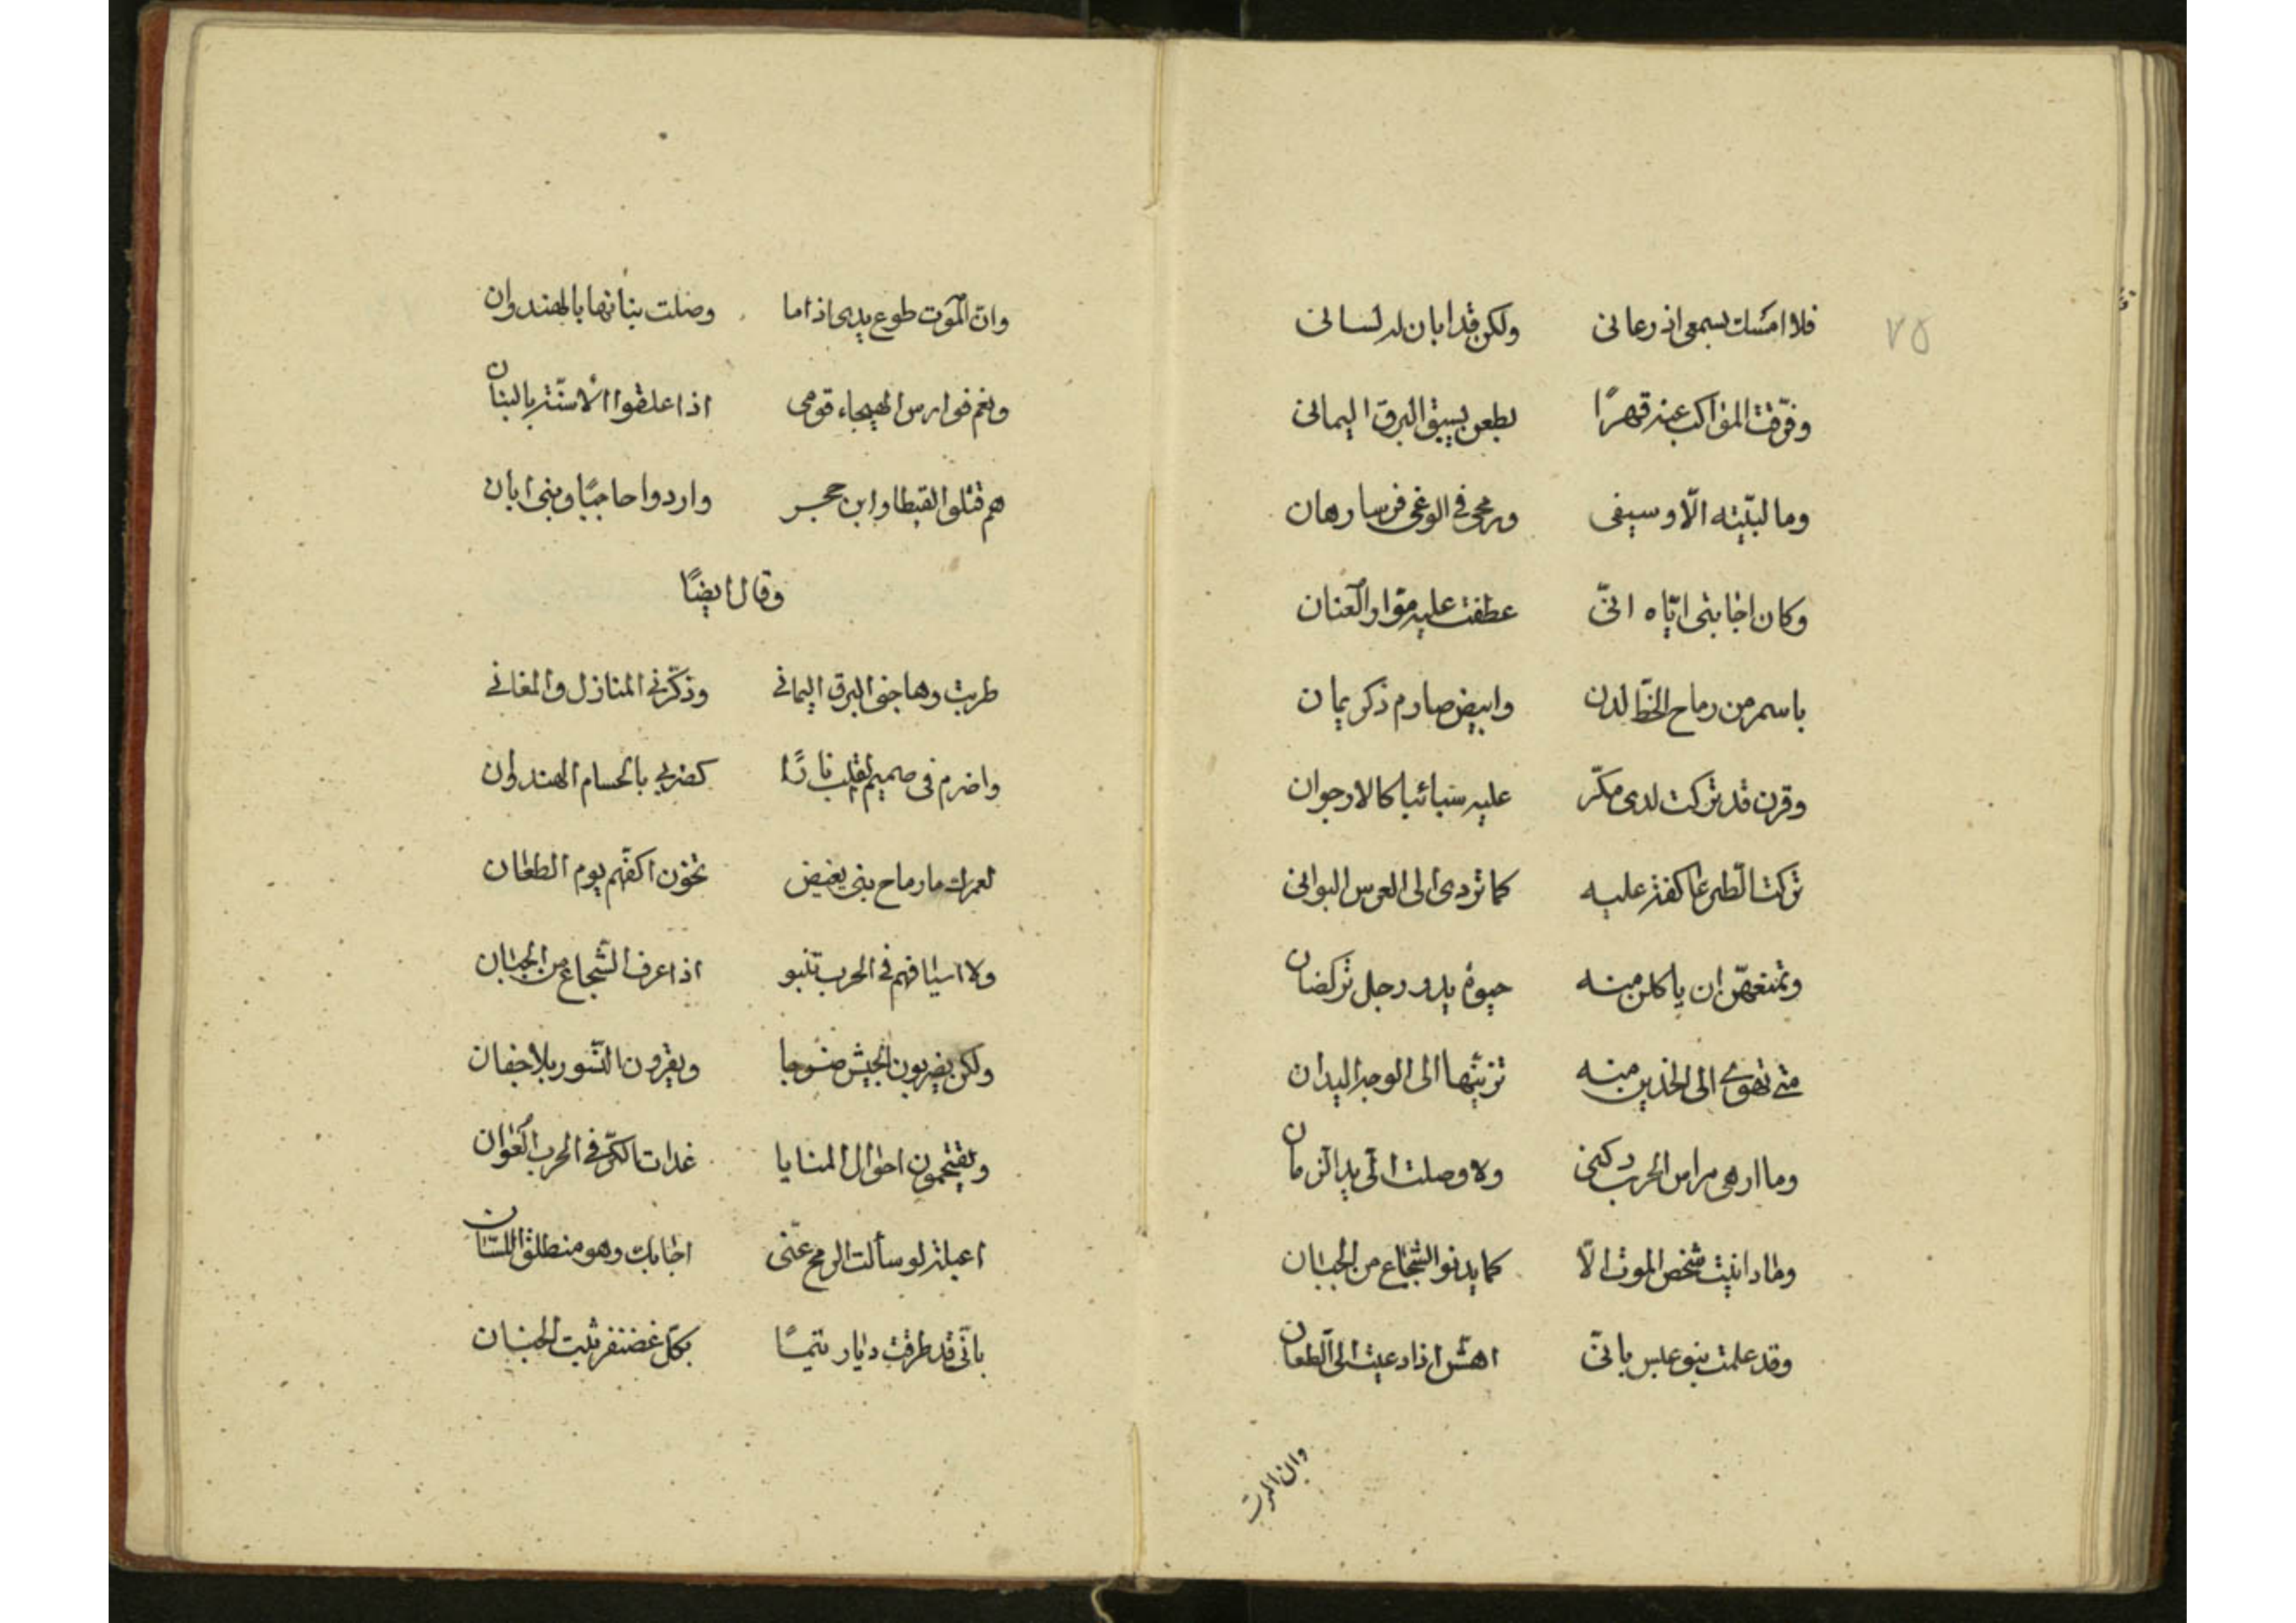 ٧٥
فلا امسكت بسمعى اذ دعانى ولكن قد ابان له لسانى
وفرّقت المواكب عنه قهرًا بطعن يسبق البرق اليمانى
وما لبّيته الّا وسيفى ورمحى فى الوغى فرسا رهان
وكان اجابتى ايّاه انّى عطفت عليه موّار العنان
باسمر من رماح الخطّ لدن وابيض صارم ذكر يمان
وقرن قد تركت لدى مكرّ عليه سبائبا كالارجوان
تركت الطّير عاكفة عليه كما تردى الى العرس البوانى
وتمنعهنّ ان ياكلن منه حيوة يد ورجل تركضان
متى تهوى الى الخدين منه تزيّنها الى الوجه اليدان
وما ارهى مراس الحرب ركنى ولا وصلت الىّ يد الزمان
وما دانيت شخص الموت الّا كما يدنو الشجاع من الجبان
وقد علمت بنو عبس بانّى اهشّ اذا دعيت الى الطّعان
وان الموت
وانّ الموت طوع يدى اذا ما وصلت بنانها بالهندوان
ونعم فوارس الهيجاء قومى اذا علقوا الاسنّة بالبنان
هم قتلوا لقيطا وابن حجر واردوا حاجبًا وبنى ابان
وقال ايضًا
طربت وهاجنى البرق اليمانى وذكّرنى المنازل والمغانى
واضرم فى صميم القلب نارًا كضربى بالحسام الهندوان
لعمرك ما رماح بنى بغيض تخون اكفّهم يوم الطعان
ولا اسيافهم فى الحرب تنبو اذا عرف الشّجاع من الجبان
ولكن يضربون الجيش ضربا ويقرون النّسور بلا جفان
ويقتحمون احوال المنايا غدات الكرّ فى الحرب العوان
اعبلة لو سألت الرمح عنّى اجابك وهو منطلق اللسان
بانّى قد طرقت ديار تيمًا بكلّ غضنفر ثبت الجنان